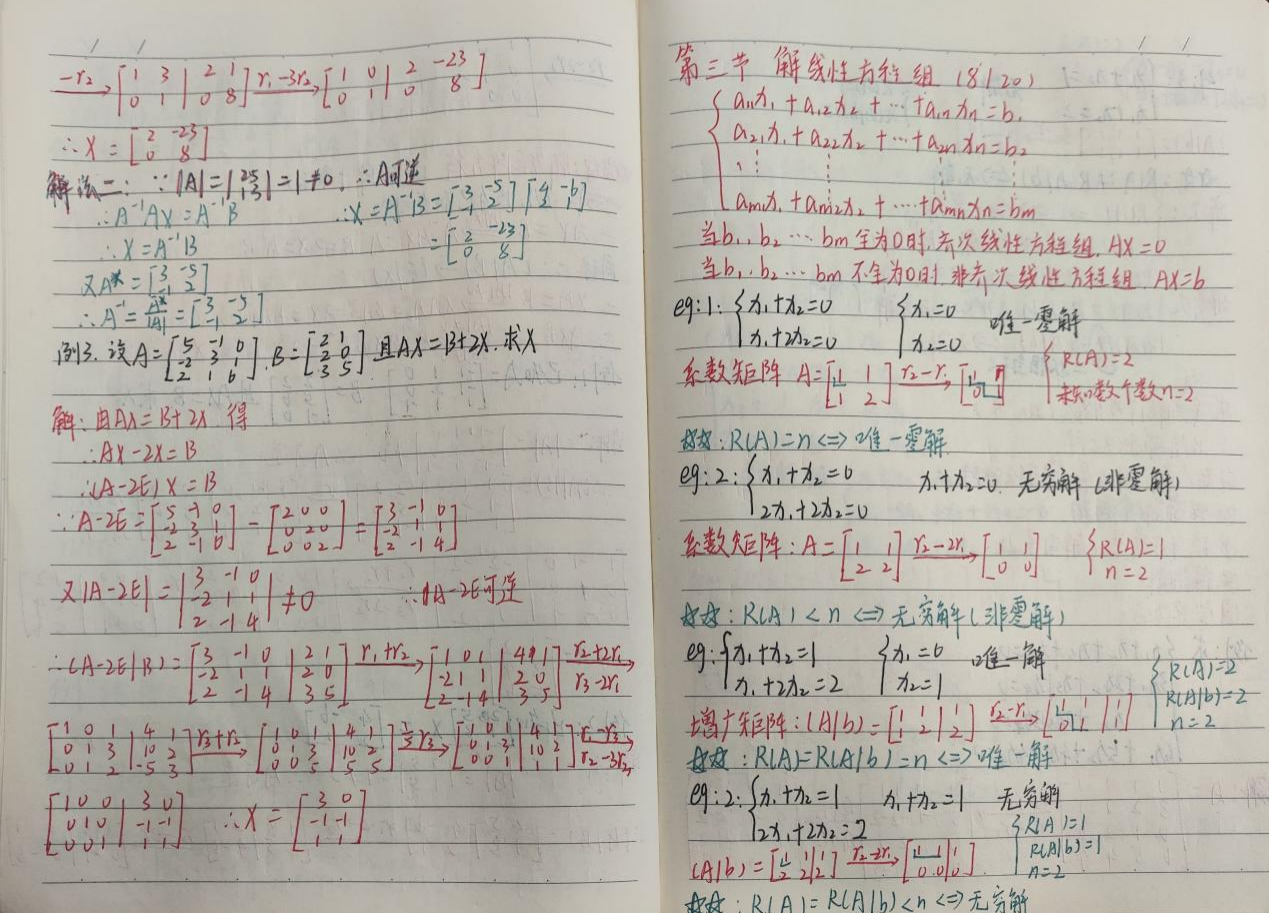 -r₂→ [1 3 | 2 1; 0 1 | 0 8] r₁-3r₂→ [1 0 | 2 -23; 0 1 | 0 8]
∴X = [2 -23; 0 8]
解法二: ∵|A|=|2 5; 1 3|=1≠0, ∴A可逆
∴A⁻¹AX=A⁻¹B ∴X=A⁻¹B=[3 -5; -1 2][4 -6; 2 1]
∴X=A⁻¹B =[2 -23; 0 8]
又A*=[3 -5; -1 2]
∴A⁻¹=A*/|A|=[3 -5; -1 2]
例3. 设A=[5 -1 0; -2 3 1; 2 1 6], B=[2 1; 2 0; 3 5] 且AX=B+2X. 求X
解: 由AX=B+2X 得
∴AX-2X=B
∴(A-2E)X=B
∵A-2E=[5 -1 0; -2 3 1; 2 -1 6]-[2 0 0; 0 2 0; 0 0 2]=[3 -1 0; -2 1 1; 2 -1 4]
又|A-2E|=|3 -1 0; -2 1 1; 2 -1 4|≠0 ∴A-2E可逆
∴(A-2E|B)=[3 -1 0 | 2 1; -2 1 1 | 2 0; 2 -1 4 | 3 5] r₁+r₂→ [1 0 1 | 4 1; -2 1 1 | 2 0; 2 -1 4 | 3 5] r₂+2r₁ r₃-2r₁→
[1 0 1 | 4 1; 0 1 3 | 10 2; 0 -1 2 | -5 3] r₃+r₂→ [1 0 1 | 4 1; 0 1 3 | 10 2; 0 0 5 | 5 5] ⅕r₃→ [1 0 1 | 4 1; 0 1 3 | 10 2; 0 0 1 | 1 1] r₁-r₃ r₂-3r₃→
[1 0 0 | 3 0; 0 1 0 | -1 -1; 0 0 1 | 1 1] ∴X=[3 0; -1 -1; 1 1]
第三节 解线性方程组 (8|20)
a₁₁x₁+a₁₂x₂+…+a₁ₙxₙ=b₁
a₂₁x₁+a₂₂x₂+…+a₂ₙxₙ=b₂
⋮ ⋮ ⋮ ⋮
aₘ₁x₁+aₘ₂x₂+…+aₘₙxₙ=bₘ
当b₁,b₂…bm全为0时,齐次线性方程组,AX=0
当b₁,b₂…bm不全为0时,非齐次线性方程组 AX=b
eg:1: {x₁+x₂=0 {x₁=0 唯一零解
x₁+2x₂=0 x₂=0
系数矩阵 A=[1 1; 1 2] r₂-r₁→ [1 1; 0 1] {R(A)=2
未知数个数n=2
☆☆:R(A)=n<=>唯一零解
eg:2: {x₁+x₂=0 x₁+x₂=0 无穷解(非零解)
2x₁+2x₂=0
系数矩阵: A=[1 1; 2 2] r₂-2r₁→ [1 1; 0 0] {R(A)=1
n=2
☆☆:R(A)<n<=>无穷解(非零解)
eg: {x₁+x₂=1 {x₁=0 唯一解
x₁+2x₂=2 x₂=1
{R(A)=2
R(A|b)=2
n=2
增广矩阵: (A|b)=[1 1 | 1; 1 2 | 2] r₂-r₁→ [1 1 | 1; 0 1 | 1]
☆☆:R(A)=R(A|b)=n<=>唯一解
eg:2: {x₁+x₂=1 x₁+x₂=1 无穷解
2x₁+2x₂=2
{R(A)=1
R(A|b)=1
n=2
(A|b)=[1 1|1; 2 2|2] r₂-2r₁→ [1 1|1; 0 0|0]
☆☆:R(A)=R(A|b)<n<=>无穷解